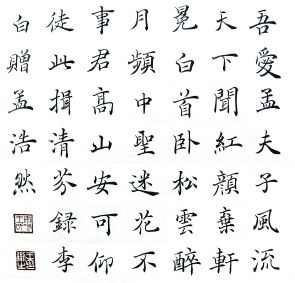 吾愛孟夫子風流
天下聞紅顏棄軒
冕白首卧松雲醉
月頻中聖迷花不
事君高山安可仰
徒此揖清芬録李
白贈孟浩然